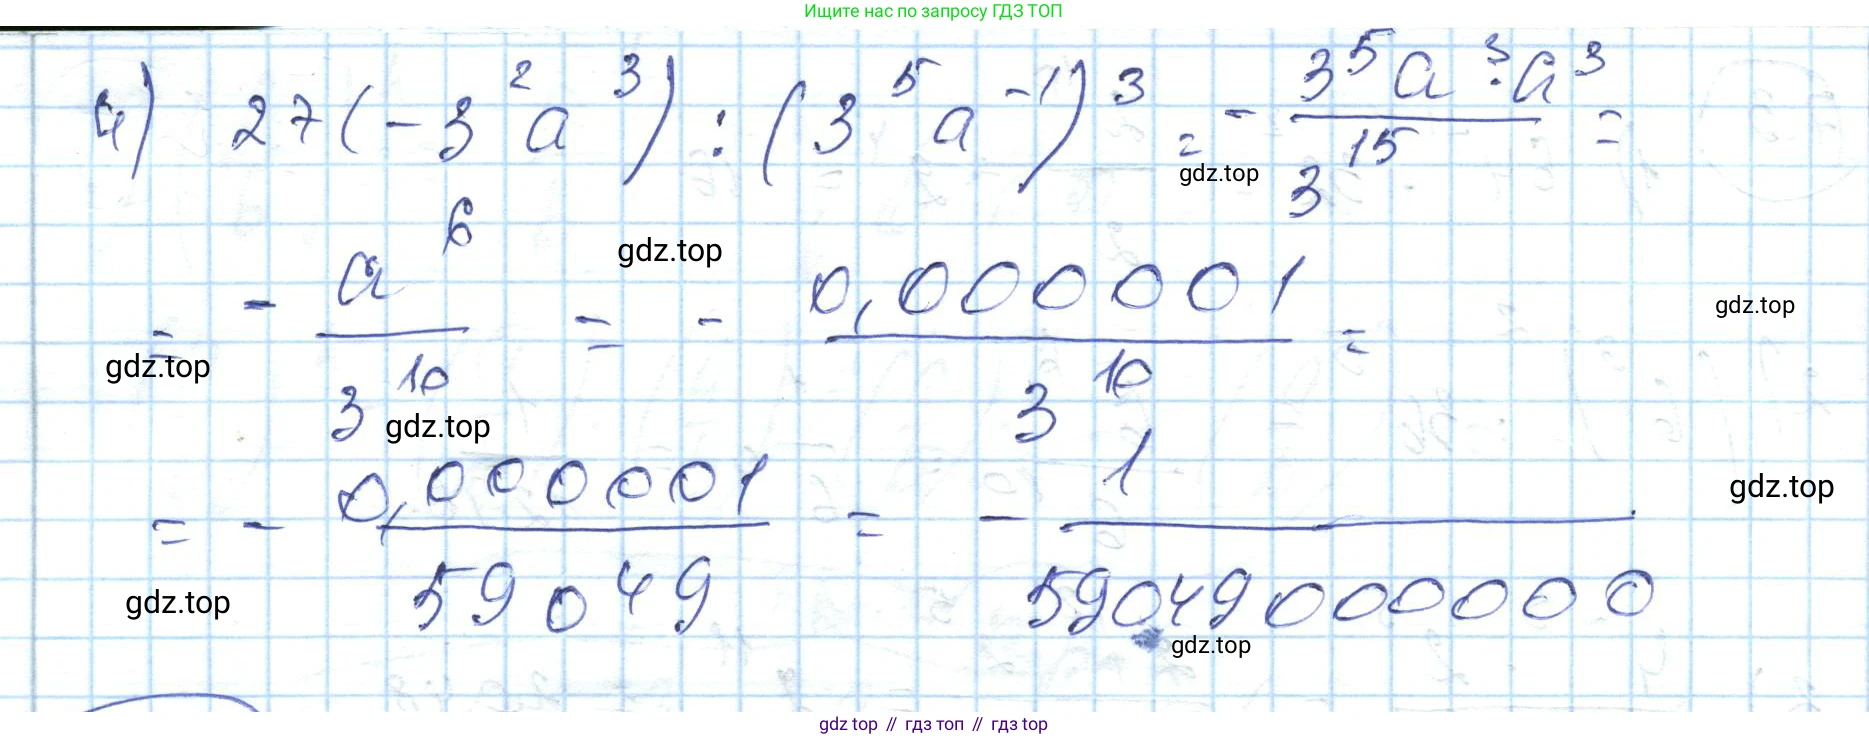 Ищите нас по запросу ГДЗ ТОП
4) 27(-3²a³) : (3⁵a⁻¹)³ = - 3⁵a³·a³ / 3¹⁵ =
gdz.top
= - a⁶ / 3¹⁰ = - 0,000001 / 3¹⁰ =
gdz.top
gdz.top
gdz.top
gdz.top
= - 0,000001 / 59049 = - 1 / 59049000000
gdz.top
gdz.top
gdz.top
gdz top // гдз топ // гдз top